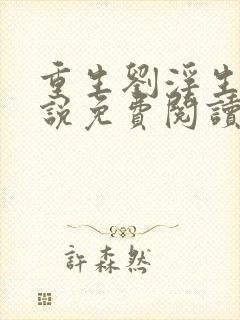 重生劉淫生
說免費閱讀
許森然